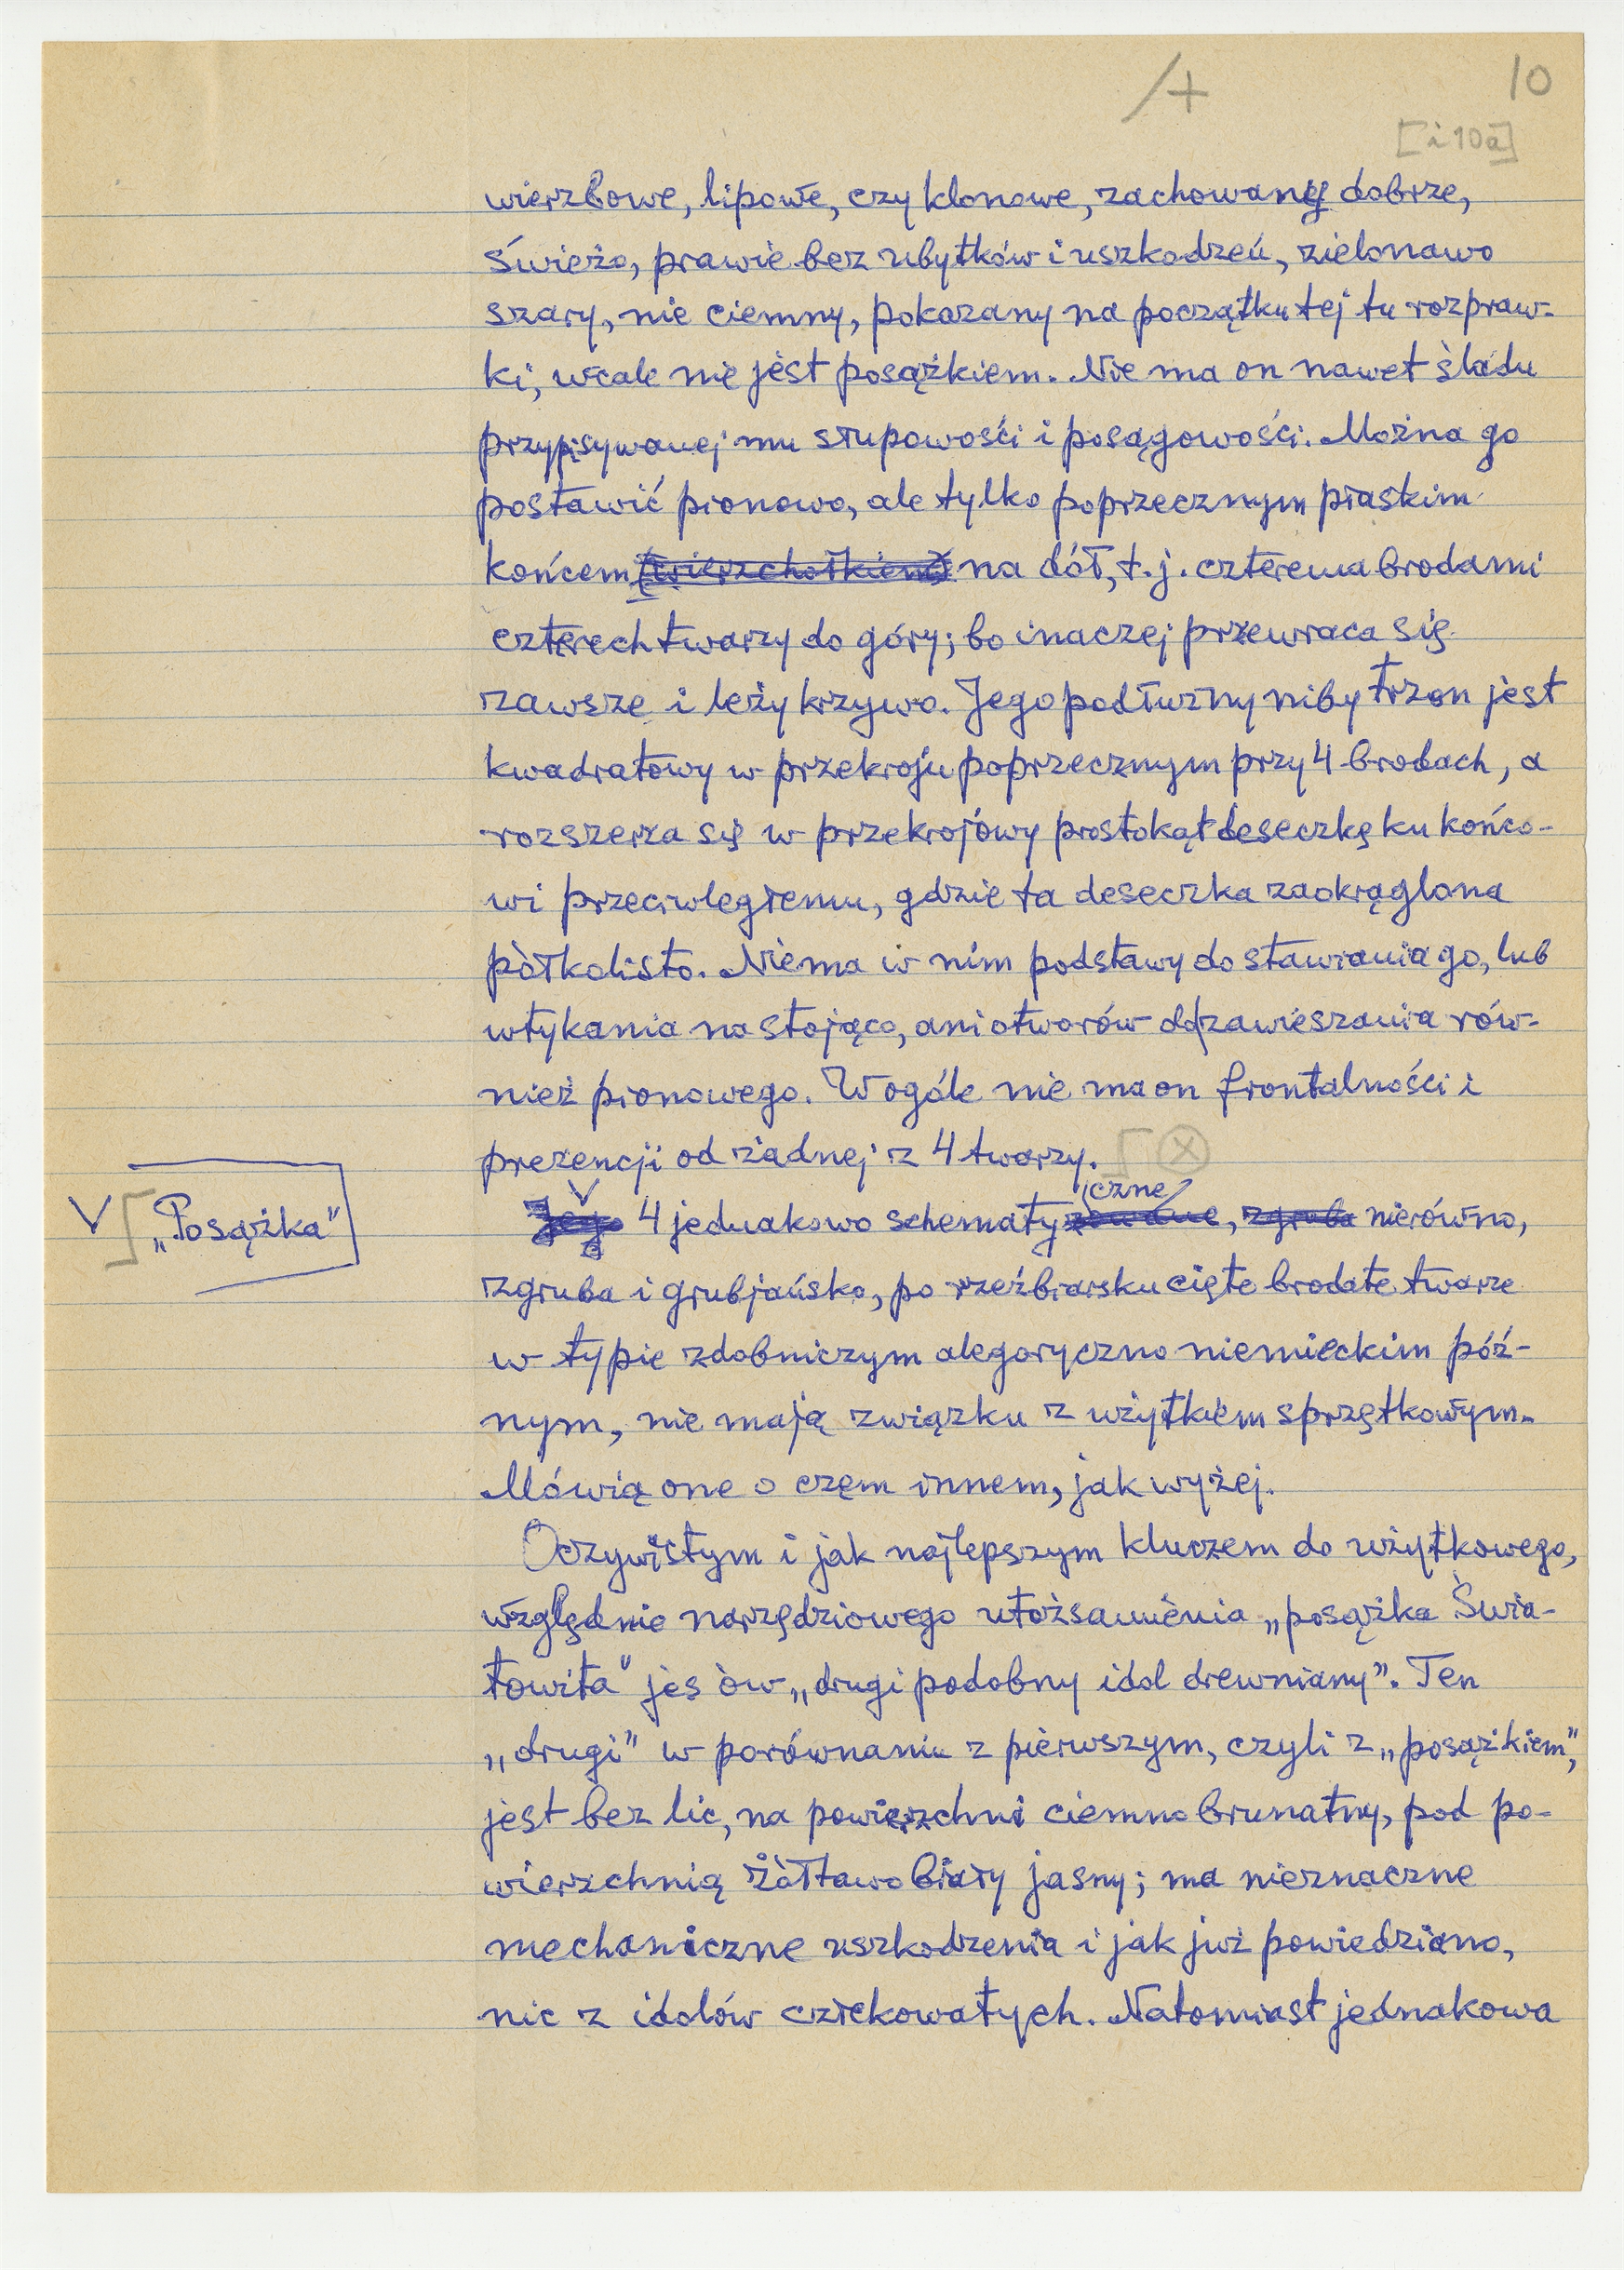 /+ 10
[i 10a]
wierzbowe, lipowe, czy klonowe, zachowany dobrze,
świeżo, prawie bez ubytków i uszkodzeń, zielonawo
szary, nie ciemny, pokazany na początku tej tu rozpraw-
ki, wcale nie jest posążkiem. Nie ma on nawet śladu
przypisywanej mu słupowości i posągowości. Można go
postawić pionowo, ale tylko poprzecznym płaskim
końcem (wierzchołkiem) na dół, t.j. czterema brodami
czterech twarzy do góry; bo inaczej przewraca się
zawsze i leży krzywo. Jego podłużny niby trzon jest
kwadratowy w przekroju poprzecznym przy 4 brodach, a
rozszerza się w przekrojowy prostokąt deseczkę ku końco-
wi przeciwległemu, gdzie ta deseczka zaokrąglona
półkolisto. Niema w nim podstawy do stawiania go, lub
wtykania na stojąco, ani otworów do zawieszania rów-
nież pionowego. Wogóle nie ma on frontalności i
prezencji od żadnej z 4 twarzy.
V „Posążka”
Jego 4 jednakowo schematyczne, zgruba nierówno,
zgruba i grubjańsko, po rzeźbiarsku cięte brodate twarze
w typie zdobniczym alegoryczno niemieckim póź-
nym, nie mają związku z użytkiem sprzętkowym.
Mówią one o czem innem, jak wyżej.
Oczywistym i jak najlepszym kluczem do użytkowego,
względnie narzędziowego utożsamienia „posążka Świa-
towita” jes ów „drugi podobny idol drewniany”. Ten
„drugi” w porównaniu z pierwszym, czyli z „posążkiem”,
jest bez lic, na powierzchni ciemno brunatny, pod po-
wierzchnią żółtawo biały jasny; ma nieznaczne
mechaniczne uszkodzenia i jak już powiedziano,
nic z idolów człekowatych. Natomiast jednakowa